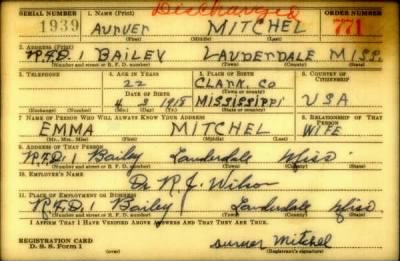 Discharged
SERIAL NUMBER 1. NAME (Print) ORDER NUMBER
1939 MITCHEL 771
2. ADDRESS (Print)
R.F.D. 1 BAILEY LAUDERDALE MISS.
3. TELEPHONE 4. AGE IN YEARS 5. PLACE OF BIRTH 6. COUNTRY OF CITIZENSHIP
22 CLARK CO
DATE OF BIRTH (Town or county)
4 3 1918 MISSISSIPPI USA
(Exchange) (Number) (Mo.) (Day) (Yr.) (State or country)
7. NAME OF PERSON WHO WILL ALWAYS KNOW YOUR ADDRESS 8. RELATIONSHIP OF THAT PERSON
EMMA MITCHEL WIFE
(Mr., Mrs., Miss) (First) (Middle) (Last)
9. ADDRESS OF THAT PERSON
R.F.D. 1 Bailey Lauderdale Miss
(Number and street or R. F. D. number) (Town) (County) (State)
10. EMPLOYER'S NAME
Dr. R. J. Wilson
11. PLACE OF EMPLOYMENT OR BUSINESS
R.F.D. 1 Bailey Lauderdale Miss
(Number and street or R. F. D. number) (Town) (County) (State)
I AFFIRM THAT I HAVE VERIFIED ABOVE ANSWERS AND THAT THEY ARE TRUE.
REGISTRATION CARD
D. S. S. Form 1
Mitchel
(Registrant's signature)